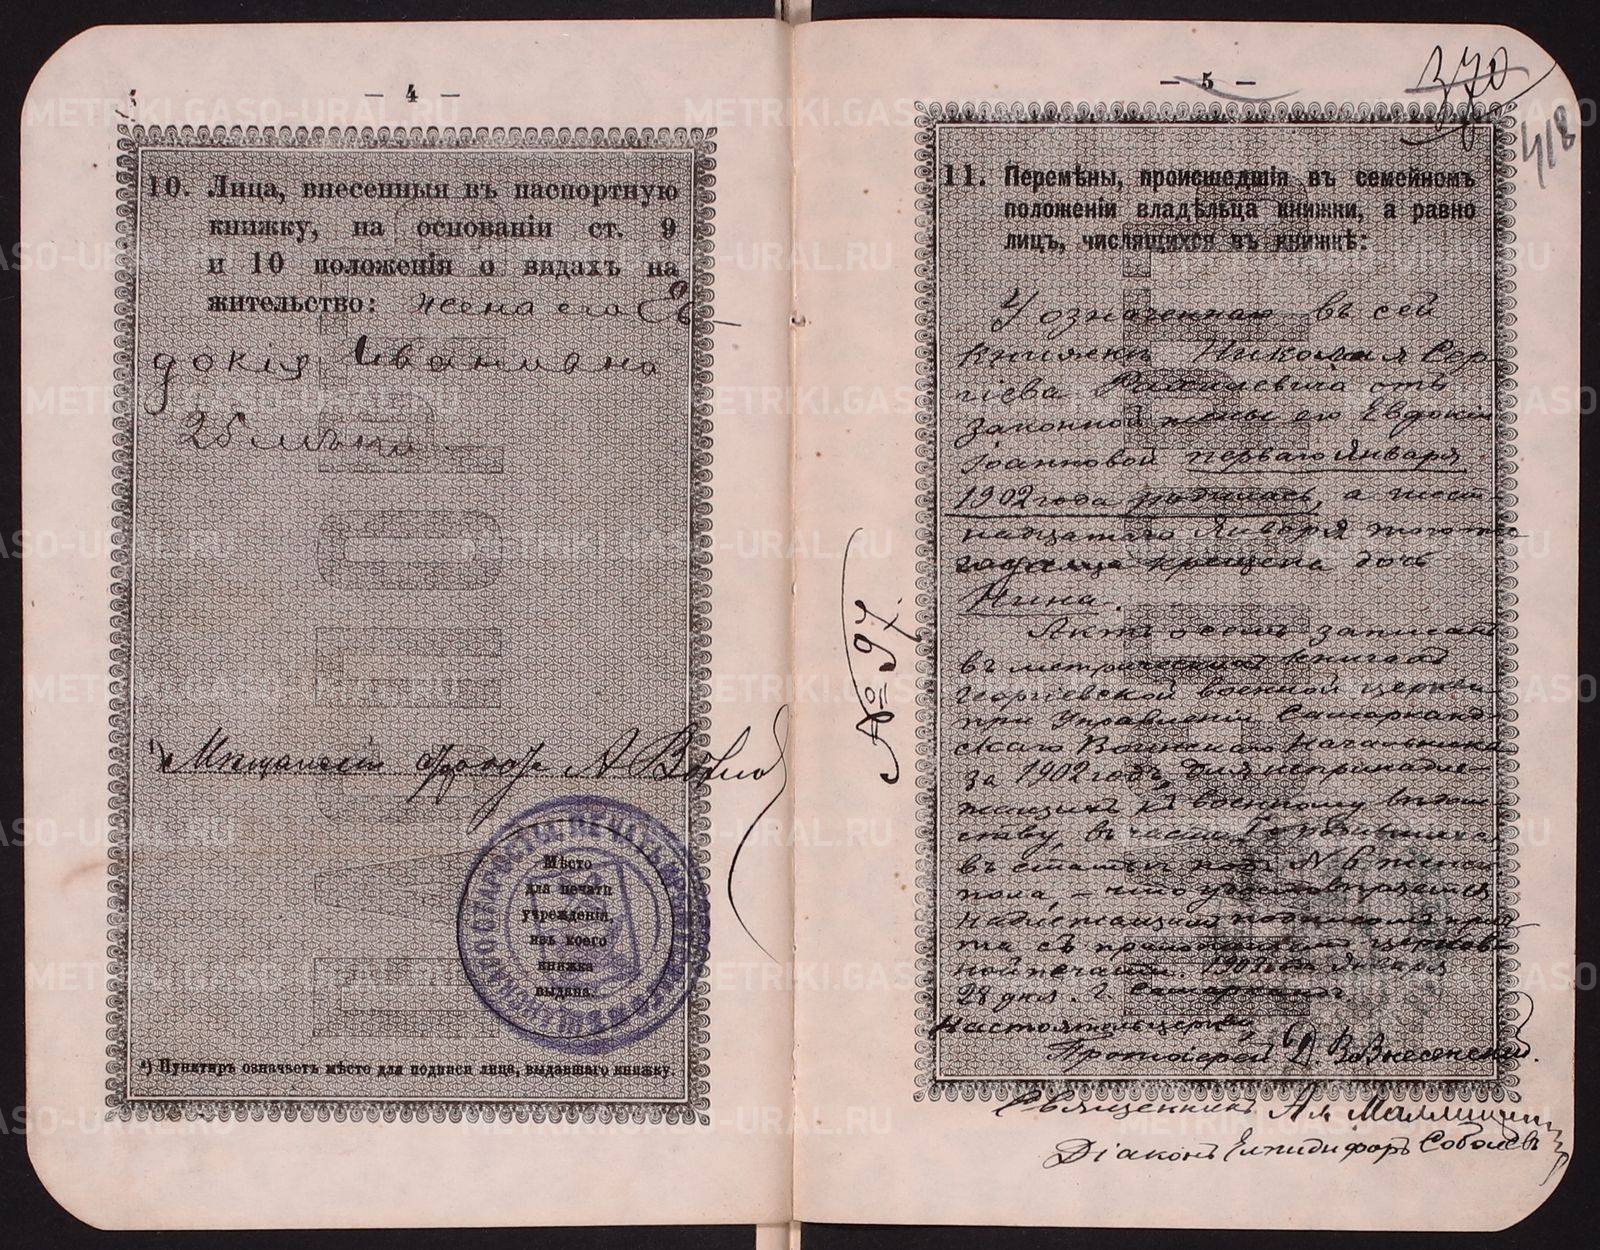 — 4 —
10. Лица, внесенныя въ паспортную
книжку, на основаніи ст. 9
и 10 положенія о видахъ на
жительство: жена его Ев
докія Ивановна
25 лѣтъ
¹) Мѣщанскій
Мѣсто
для печати
учрежденія,
изъ коего
книжка
выдана.
¹) Пунктиръ означаетъ мѣсто для подписи лица, выдавшаго книжку.
— 5 —
370
418
11. Перемѣны, происшедшія въ семейномъ
положеніи владѣльца книжки, а равно
лицъ, числящихся въ книжкѣ:
У означеннаго въ сей
книжкѣ Николая Сер
гіева отъ
законной жены его Евдокіи
Іоанновой перваго Января
1902 года родилась, а шест
надцатаго Января того же
года крещена дочь
Нина.
Актъ о семъ записанъ
въ метрической книгѣ
Георгіевской военной церкви
при Управленіи Самарканд
скаго Воинскаго Начальника
за 1902 годъ, для непринадле
жащихъ къ военному вѣдом
ству, въ части I о родившихся
въ статьѣ подъ № 6 женск.
пола, – что удостовѣряется
надлежащимъ подписомъ прич
та съ приложеніемъ церков
ной печати. 1902 года Января
28 дня. Г. Самаркандъ.
Настоятель церкви,
Протоіерей Д. Вознесенскій.
Священникъ Ал. Малицкій
Діаконъ Елпидифоръ Соболевъ
№ 97.
METRIKI.GASO-URAL.RU